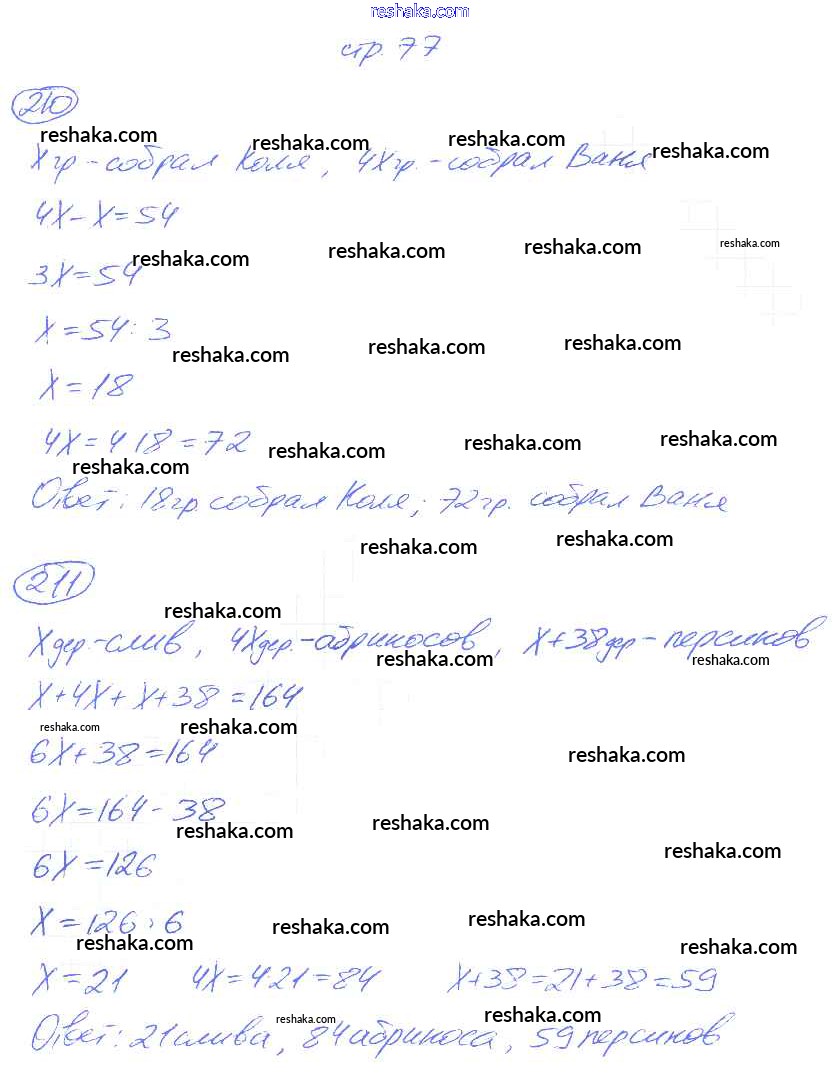 reshaka.com
стр. 77
210
reshaka.com reshaka.com reshaka.com reshaka.com
Х гр - собрал Коля, 4Х гр. - собрал Ваня
4Х - Х = 54
reshaka.com reshaka.com reshaka.com reshaka.com
3Х = 54
Х = 54 : 3
reshaka.com reshaka.com reshaka.com
Х = 18
4Х = 4 18 = 72
reshaka.com reshaka.com reshaka.com reshaka.com
Ответ: 18 гр. собрал Коля; 72 гр. собрал Ваня
reshaka.com reshaka.com
211
reshaka.com
Х дер. - слив, 4Х дер. - абрикосов, Х + 38 дер - персиков
reshaka.com reshaka.com
Х + 4Х + Х + 38 = 164
reshaka.com reshaka.com
6Х + 38 = 164
reshaka.com
6Х = 164 - 38
reshaka.com reshaka.com reshaka.com
6Х = 126
Х = 126 : 6
reshaka.com reshaka.com reshaka.com reshaka.com
Х = 21 4Х = 4 21 = 84 Х + 38 = 21 + 38 = 59
reshaka.com reshaka.com
Ответ: 21 слива, 84 абрикоса, 59 персиков